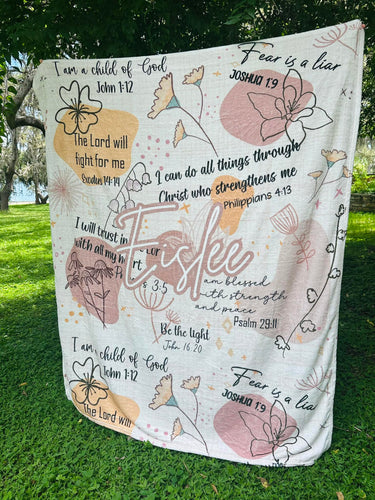 I am a child of God
John 1:12
Fear is a liar
JOSHUA 1:9
The Lord will
fight for me
Exodus 14:14
I can do all things through
Christ who strengthens me
Philippians 4:13
I will trust in
with all my
3:5
Eislee
am blessed
with strength
and peace
Psalm 29:11
Be the light
John 16:20
I am a child of God
John 1:12
Fear is a lia
JOSHUA 1:9
The Lord will